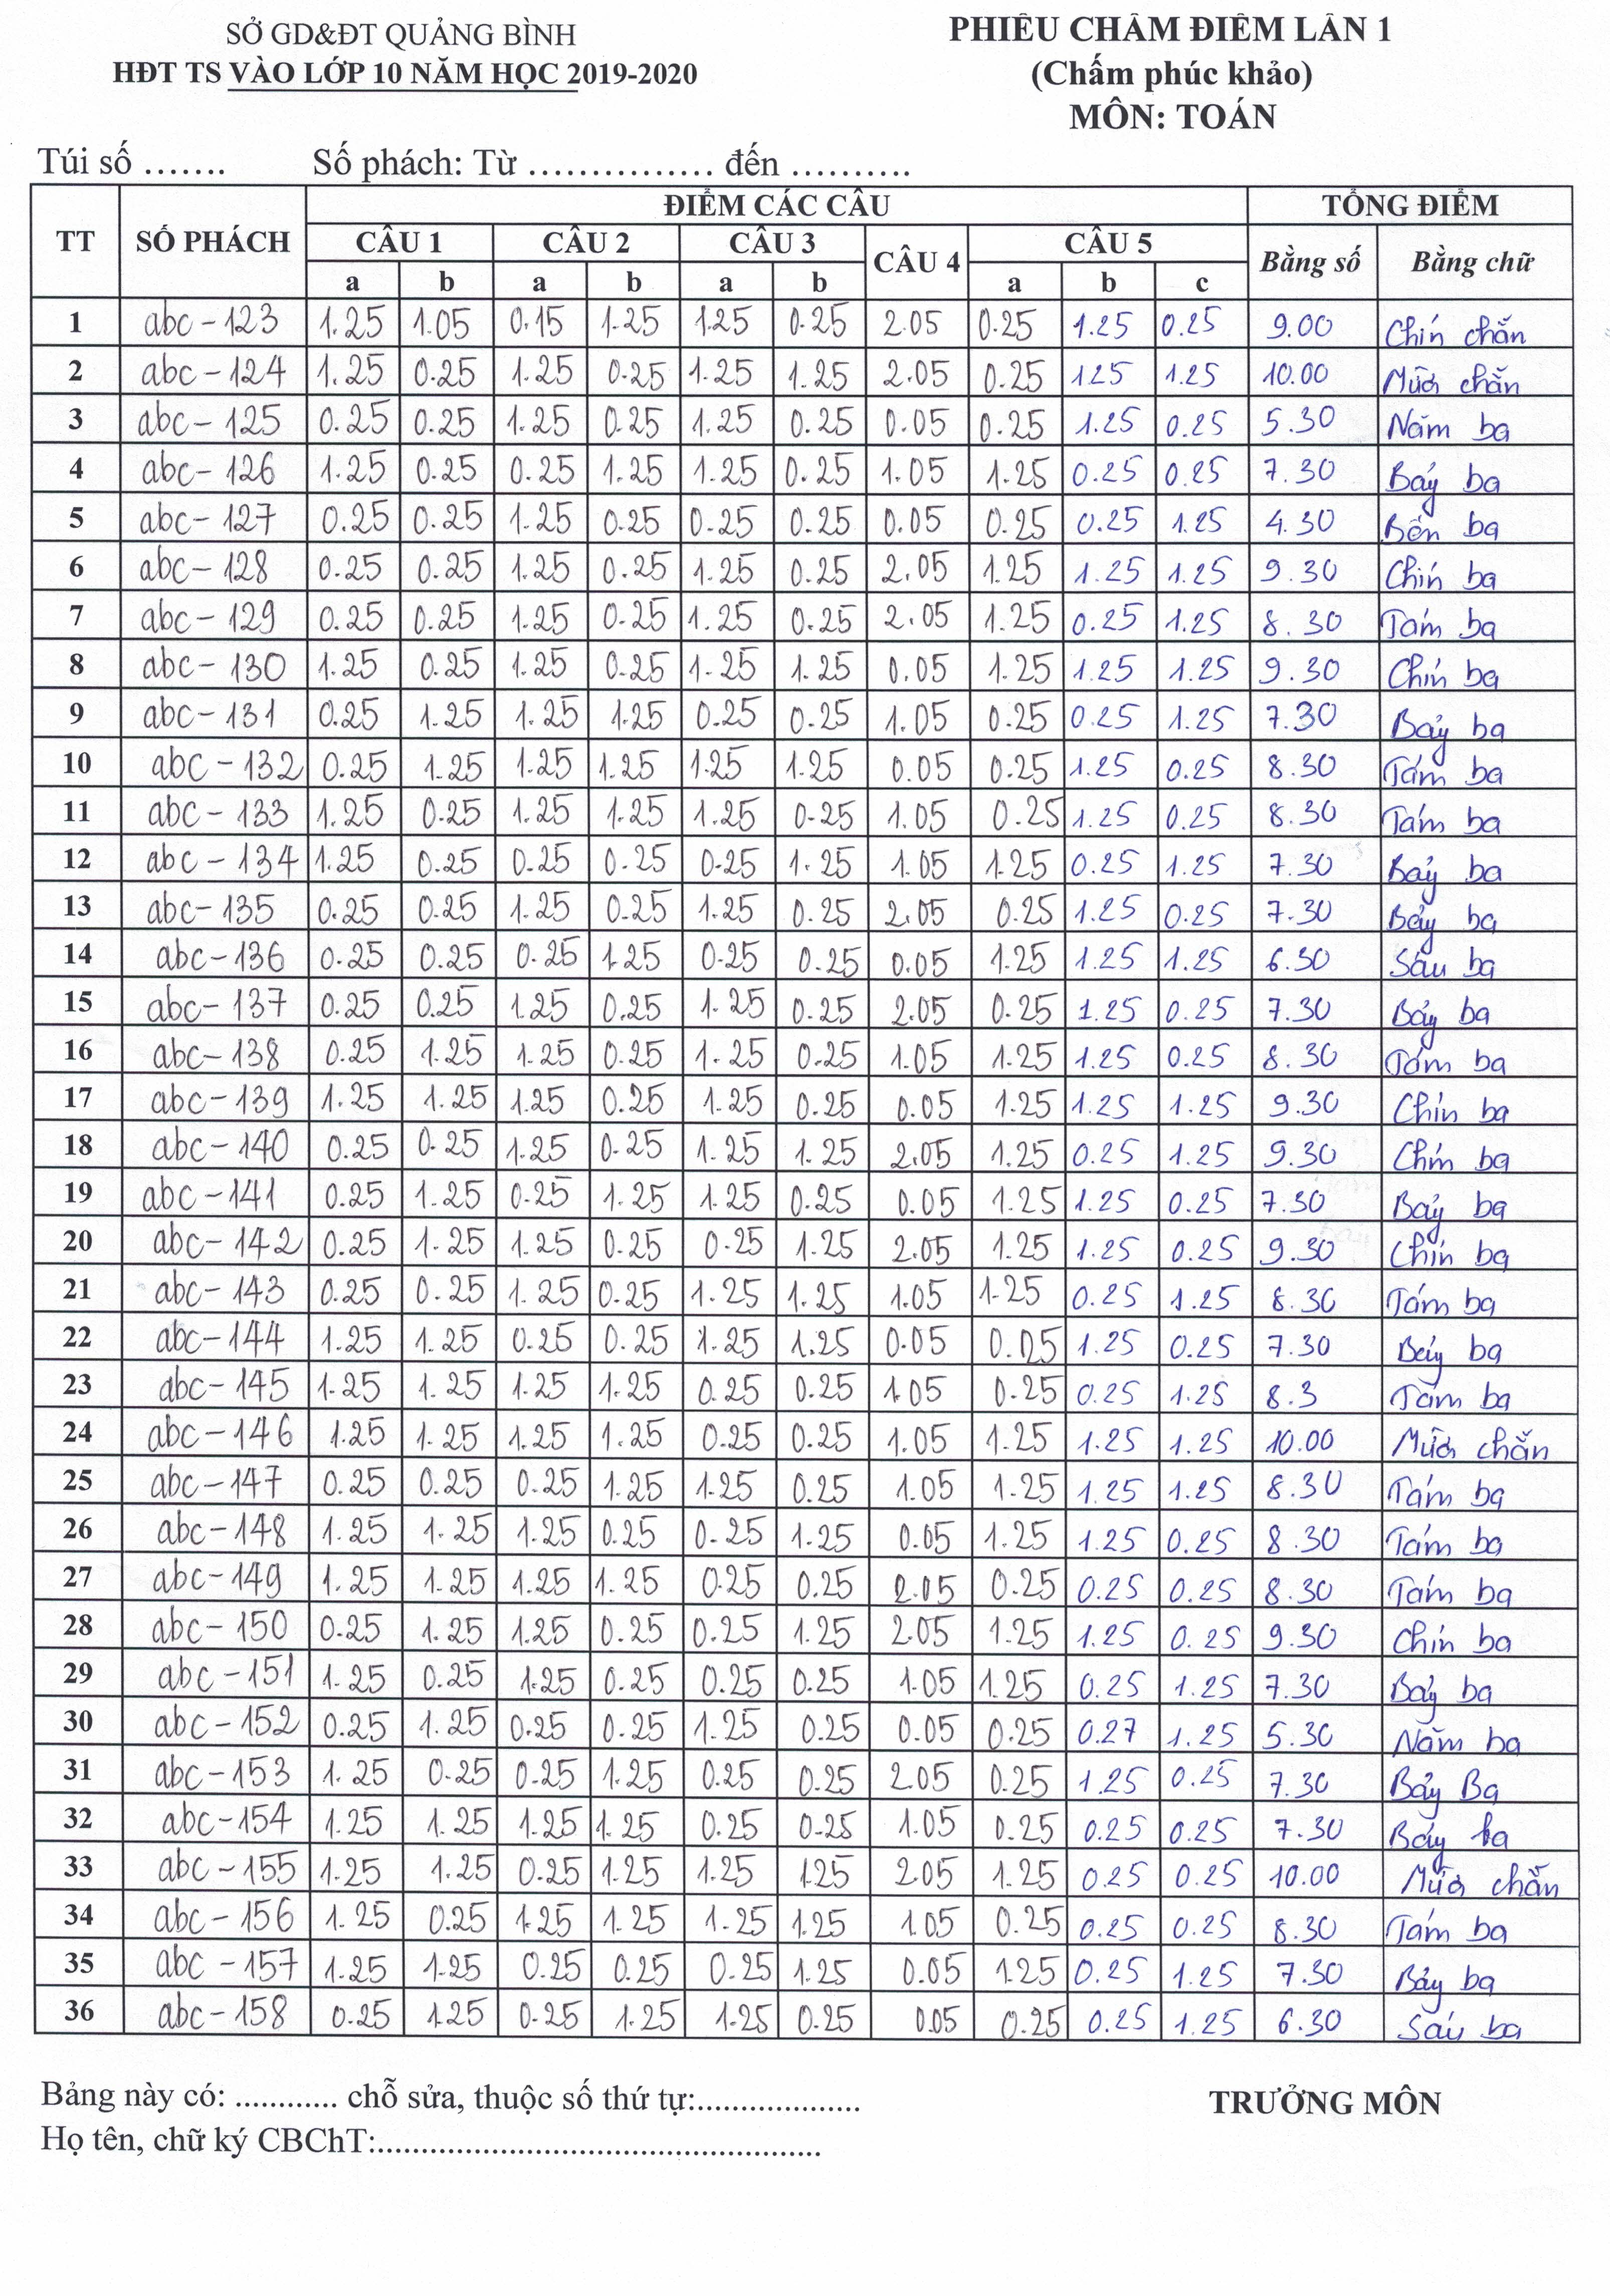 SỞ GD&ĐT QUẢNG BÌNH
HĐT TS VÀO LỚP 10 NĂM HỌC 2019-2020
PHIẾU CHẤM ĐIỂM LẦN 1
(Chấm phúc khảo)
MÔN: TOÁN
Túi số ....... Số phách: Từ ................ đến ..........
TT SỐ PHÁCH ĐIỂM CÁC CÂU TỔNG ĐIỂM
CÂU 1 CÂU 2 CÂU 3 CÂU 4 CÂU 5 Bằng số Bằng chữ
a b a b a b a b c
1 abc-123 1.25 1.05 0.15 1.25 1.25 0.25 2.05 0.25 1.25 0.25 9.00 Chín chẵn
2 abc-124 1.25 0.25 1.25 0.25 1.25 1.25 2.05 0.25 125 1.25 10.00 Mười chẵn
3 abc-125 0.25 0.25 1.25 0.25 1.25 0.25 0.05 0.25 1.25 0.25 5.30 Năm ba
4 abc-126 1.25 0.25 0.25 1.25 1.25 0.25 1.05 1.25 0.25 0.25 7.30 Bảy ba
5 abc-127 0.25 0.25 1.25 0.25 0.25 0.25 0.05 0.25 0.25 1.25 4.30 Bốn ba
6 abc-128 0.25 0.25 1.25 0.25 1.25 0.25 2.05 1.25 1.25 1.25 9.30 Chín ba
7 abc-129 0.25 0.25 1.25 0.25 1.25 0.25 2.05 1.25 0.25 1.25 8.30 Tám ba
8 abc-130 1.25 0.25 1.25 0.25 1.25 1.25 0.05 1.25 1.25 1.25 9.30 Chín ba
9 abc-131 0.25 1.25 1.25 1.25 0.25 0.25 1.05 0.25 0.25 1.25 7.30 Bảy ba
10 abc-132 0.25 1.25 1.25 1.25 1.25 1.25 0.05 0.25 1.25 0.25 8.30 Tám ba
11 abc-133 1.25 0.25 1.25 1.25 1.25 0.25 1.05 0.25 1.25 0.25 8.30 Tám ba
12 abc-134 1.25 0.25 0.25 0.25 0.25 1.25 1.05 1.25 0.25 1.25 7.30 Bảy ba
13 abc-135 0.25 0.25 1.25 0.25 1.25 0.25 2.05 0.25 1.25 0.25 7.30 Bảy ba
14 abc-136 0.25 0.25 0.25 1.25 0.25 0.25 0.05 1.25 1.25 1.25 6.30 Sáu ba
15 abc-137 0.25 0.25 1.25 0.25 1.25 0.25 2.05 0.25 1.25 0.25 7.30 Bảy ba
16 abc-138 0.25 1.25 1.25 0.25 1.25 0.25 1.05 1.25 1.25 0.25 8.30 Tám ba
17 abc-139 1.25 1.25 1.25 0.25 1.25 0.25 0.05 1.25 1.25 1.25 9.30 Chín ba
18 abc-140 0.25 0.25 1.25 0.25 1.25 1.25 2.05 1.25 0.25 1.25 9.30 Chín ba
19 abc-141 0.25 1.25 0.25 1.25 1.25 0.25 0.05 1.25 1.25 0.25 7.30 Bảy ba
20 abc-142 0.25 1.25 1.25 0.25 0.25 1.25 2.05 1.25 1.25 0.25 9.30 Chín ba
21 abc-143 0.25 0.25 1.25 0.25 1.25 1.25 1.05 1.25 0.25 1.25 8.30 Tám ba
22 abc-144 1.25 1.25 0.25 0.25 1.25 1.25 0.05 1.25 0.25 7.30 Bảy ba
23 abc-145 1.25 1.25 1.25 1.25 0.25 0.25 1.05 0.25 0.25 1.25 8.3 Tám ba
24 abc-146 1.25 1.25 1.25 1.25 0.25 0.25 1.05 1.25 1.25 1.25 10.00 Mười chẵn
25 abc-147 0.25 0.25 0.25 1.25 1.25 0.25 1.05 1.25 1.25 1.25 8.30 Tám ba
26 abc-148 1.25 1.25 1.25 0.25 0.25 1.25 0.05 1.25 1.25 0.25 8.30 Tám ba
27 abc-149 1.25 1.25 1.25 1.25 0.25 0.25 2.05 0.25 0.25 0.25 8.30 Tám ba
28 abc-150 0.25 1.25 1.25 0.25 0.25 1.25 2.05 1.25 1.25 0.25 9.30 Chín ba
29 abc-151 1.25 0.25 1.25 0.25 0.25 0.25 1.05 1.25 0.25 1.25 7.30 Bảy ba
30 abc-152 0.25 1.25 0.25 0.25 1.25 0.25 0.05 0.25 0.27 1.25 5.30 Năm ba
31 abc-153 1.25 0.25 0.25 1.25 0.25 0.25 2.05 0.25 1.25 0.25 7.30 Bảy Ba
32 abc-154 1.25 1.25 1.25 1.25 0.25 0.25 1.05 0.25 0.25 0.25 7.30 Bảy ba
33 abc-155 1.25 1.25 0.25 1.25 1.25 125 2.05 1.25 0.25 0.25 10.00 Mười chẵn
34 abc-156 1.25 0.25 1.25 1.25 1.25 1.25 1.05 0.25 0.25 0.25 8.30 Tám ba
35 abc-157 1.25 1.25 0.25 0.25 0.25 1.25 0.05 125 0.25 1.25 7.30 Bảy ba
36 abc-158 0.25 1.25 0.25 1.25 1.25 0.25 0.05 0.25 0.25 1.25 6.30 Sáu ba
Bảng này có: ............ chỗ sửa, thuộc số thứ tự:...................
TRƯỞNG MÔN
Họ tên, chữ ký CBChT:....................................................